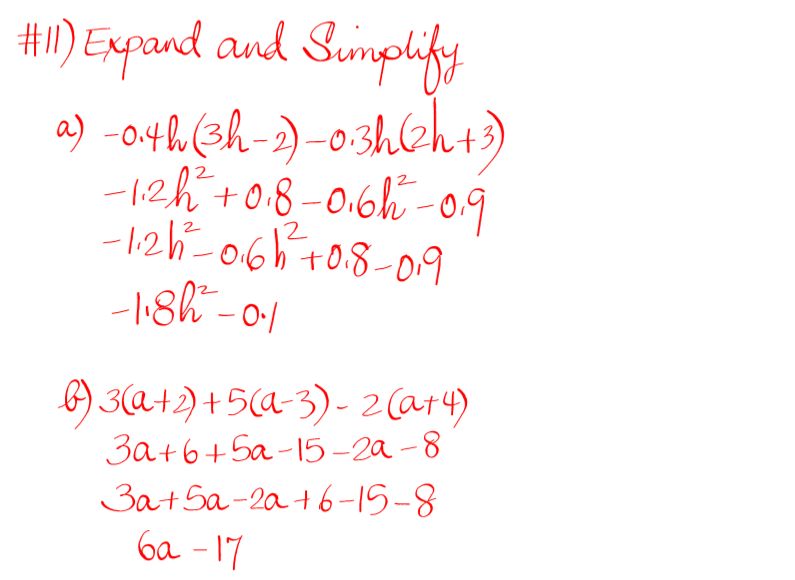 #11) Expand and Simplify
a) -0.4h(3h-2)-0.3h(2h+3)
-1.2h²+0.8-0.6h²-0.9
-1.2h²-0.6h²+0.8-0.9
-1.8h²-0.1
b) 3(a+2)+5(a-3)-2(a+4)
3a+6+5a-15-2a-8
3a+5a-2a+6-15-8
6a-17